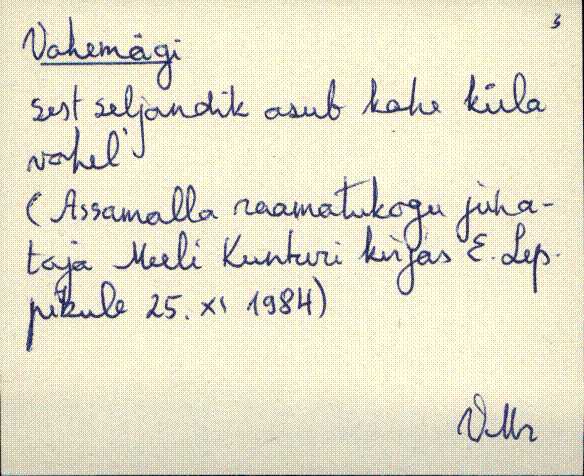 3
Vahemägi
sest seljandik asub kahe küla
vahel
(Assamalla raamatukogu juha-
taja Meeli Kunturi kirjas E. Lep-
pikule 25. XI 1984)
VMr